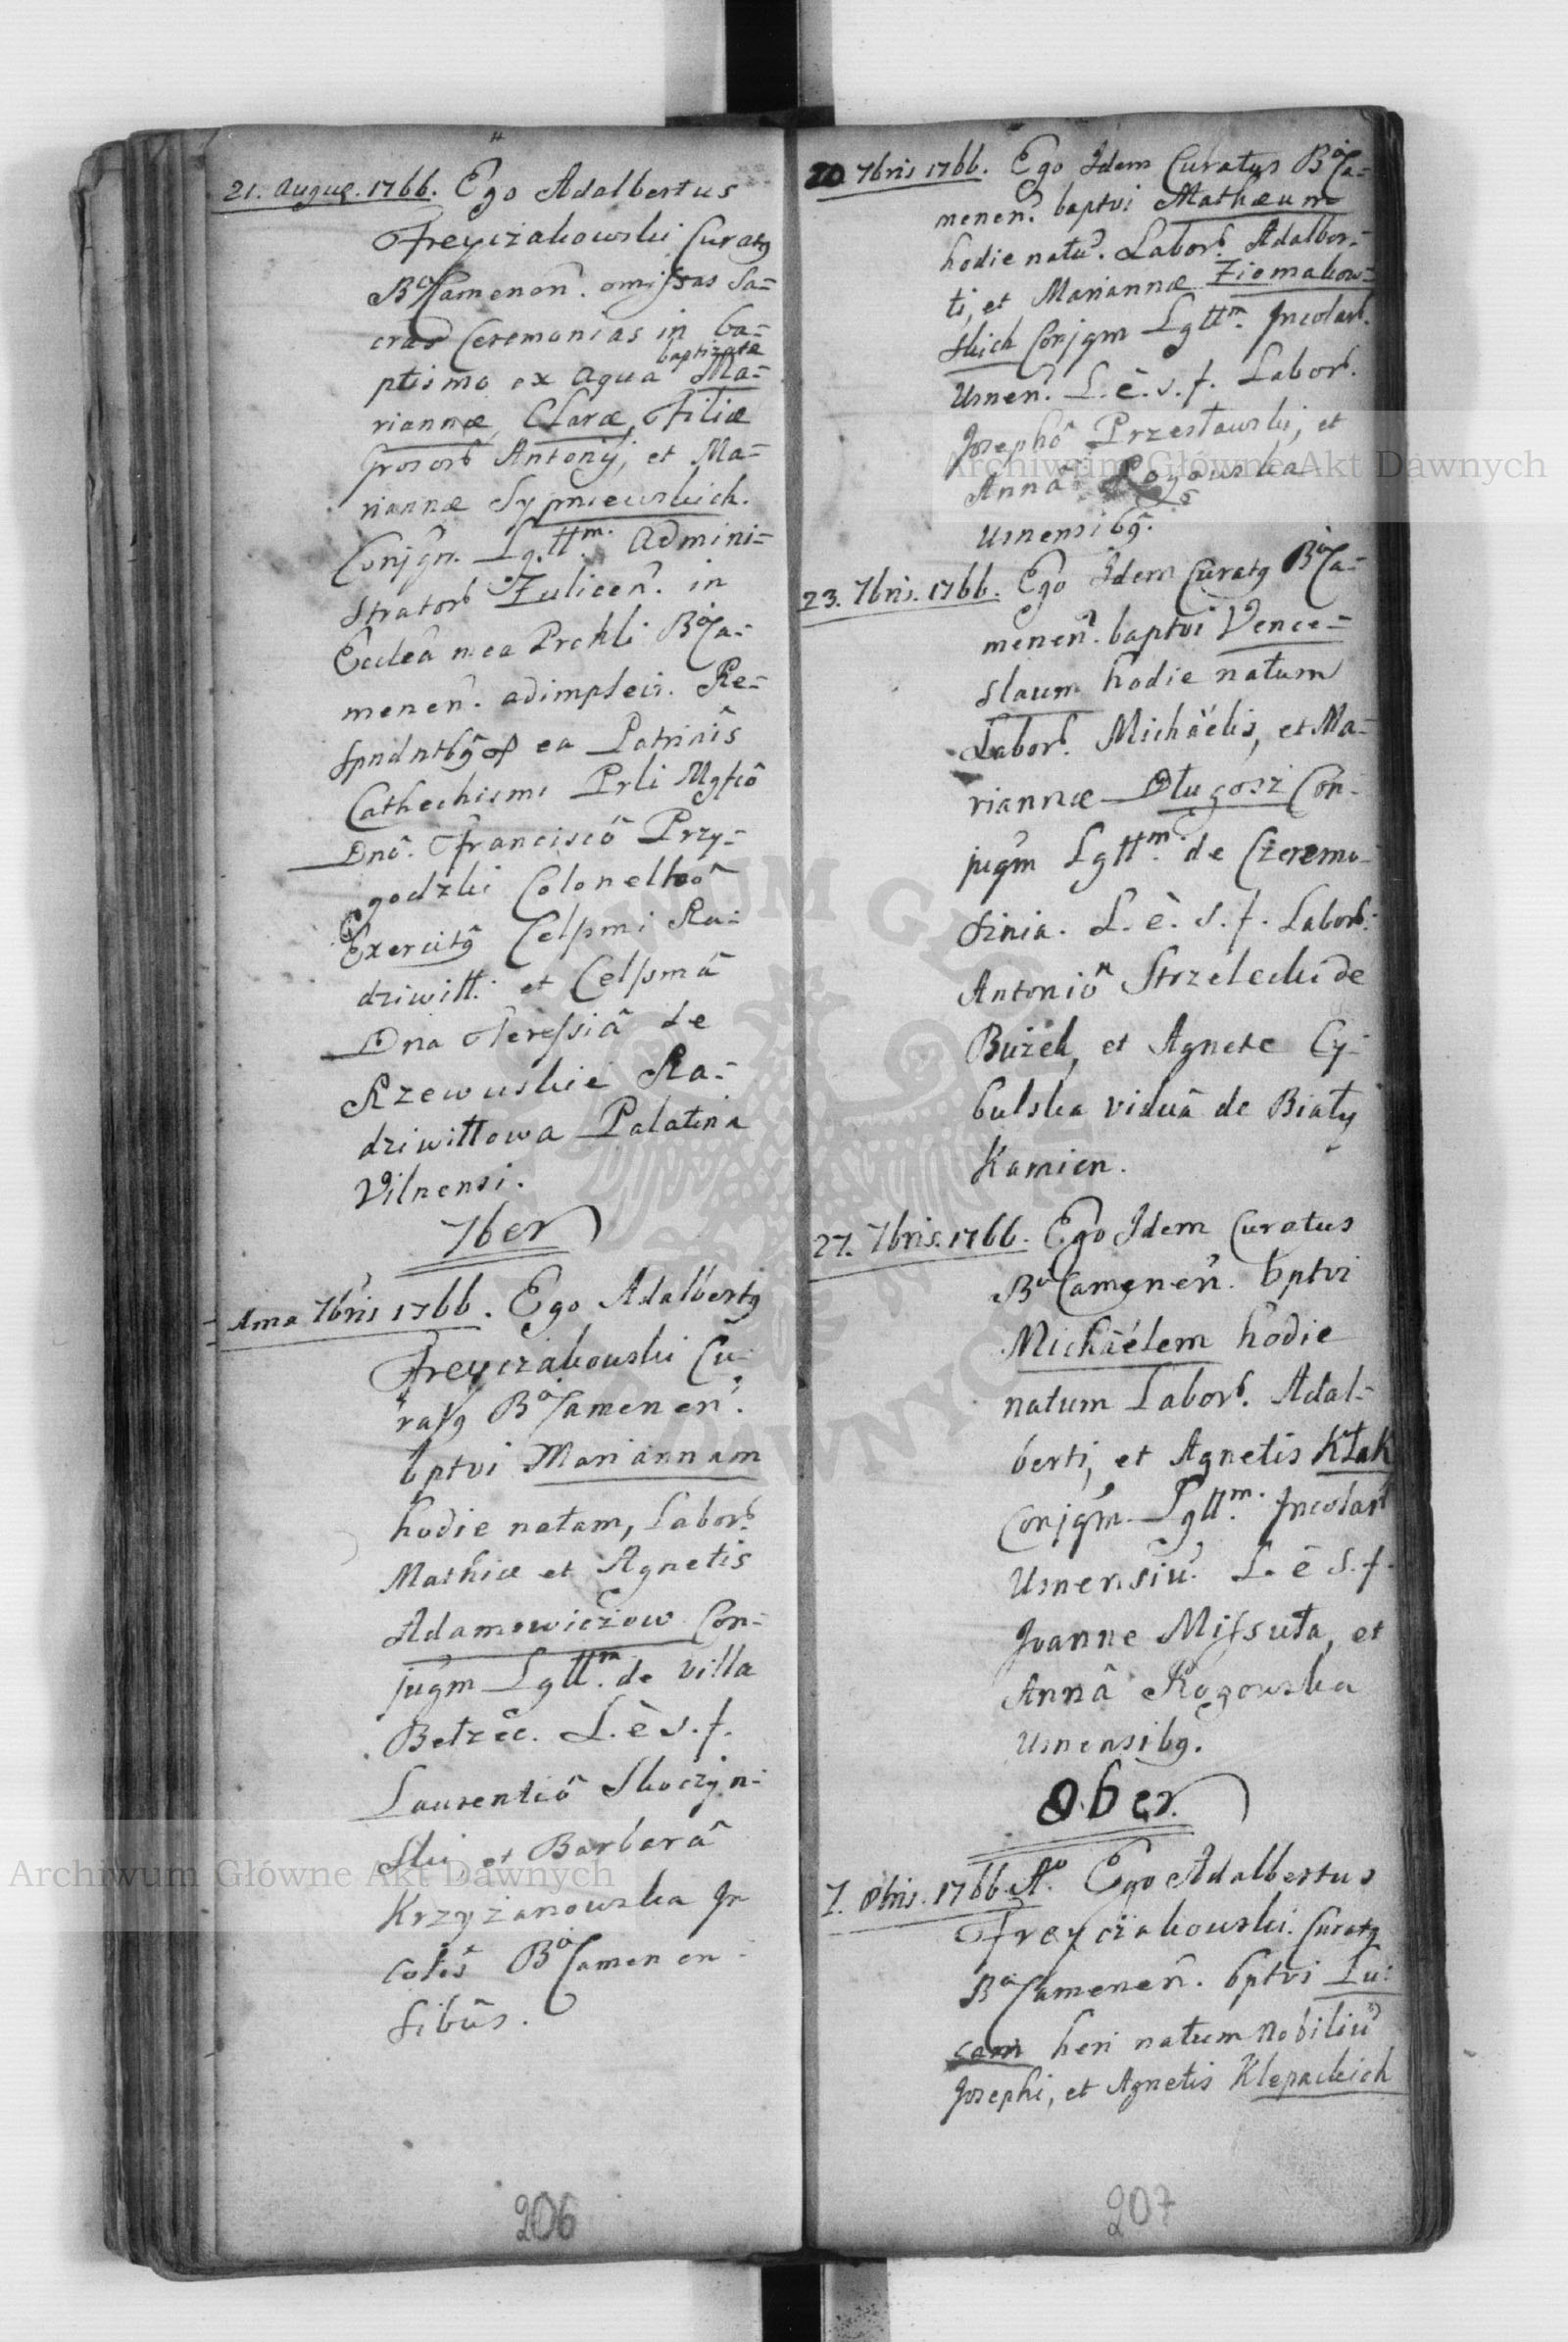 21. Augus. 1766. Ego Adalbertus
Freyciżakowski Curatg
BaCamenen. omissas Sa=
cras Ceremonias in ba=
baptizatæ
ptismo ex aqua Ma=
riannæ, Claræ, Filiæ
Grosorb Antonij, et Ma=
riannæ Sypniewskich.
Conjgm. Lgttm. Admini=
stratorb Zulicen. in
Eccleâ mea Prchli BaCa=
menen. adimplevi. Re=
spndntbg ea Patrinis
Cathechismi Prli Mgfcô
Dnô. Franciscô Przy=
godzki Colonellô
Exercitg Celssmi Ra=
dziwiłł. et Celssmâ
Dna Teressiâ de
Rzewuskie Ra=
dziwiłłowa Palatina
Vilnensi.
7ber
Ama 7bris 1766. Ego Adalbertg
Freyciżakowski Cu=
ratg BaCamenen.
bptvi Mariannam
hodie natam, Laborb.
Mathiæ et Agnetis
Adamowiczow Con=
jugm Lgttm. de villa
Bełzec. L. è s. f.
Laurentiô Skoczyn=
ski, et Barbarâ
Krzyżanowska In
colis BaCamenen=
sibus.
206
20 7bris 1766. Ego Idem Curatus BaCa=
menen. baptvi Mathæum
hodie natu. Laborb. Adalber=
ti, et Mariannæ Ziomakow=
skich Conjgm Lgttm. Incolarb.
Usnen. L. è. s. f. Laborb.
Josephô Przesławski, et
Annâ Rogowska
Usnensibg.
23. 7bris. 1766. Ego Idem Curatg BaCa=
menen. baptvi Vence=
slaum hodie natum
Laborb. Michaëlis, et Ma=
riannæ Długosz Con=
jugm Lgttm. de Czeremo=
sznia. L. è. s. f. Laborb.
Antoniô Strzelecki de
Bużek, et Agnete Cy=
bulska viduâ de Biały
Kamien.
27. 7bris. 1766. Ego Idem Curatus
BaCamenen. bptvi
Michaëlem hodie
natum Laborb. Adal=
berti, et Agnetis Kłak
Conjgm Lgttm. Incolarb
Usnensiu. L. è s. f.
Joanne Missuta, et
Annâ Rogowska
Usnensibg.
8ber.
7. 8bris. 1766. Ao. Ego Adalbertus
Freyciżakowski. Curatg
BaCamenen. bptvi Lu=
cam heri natum Nobiliu
Josephi, et Agnetis Klepackich
207
Archiwum Główne Akt Dawnych
Archiwum Główne Akt Dawnych